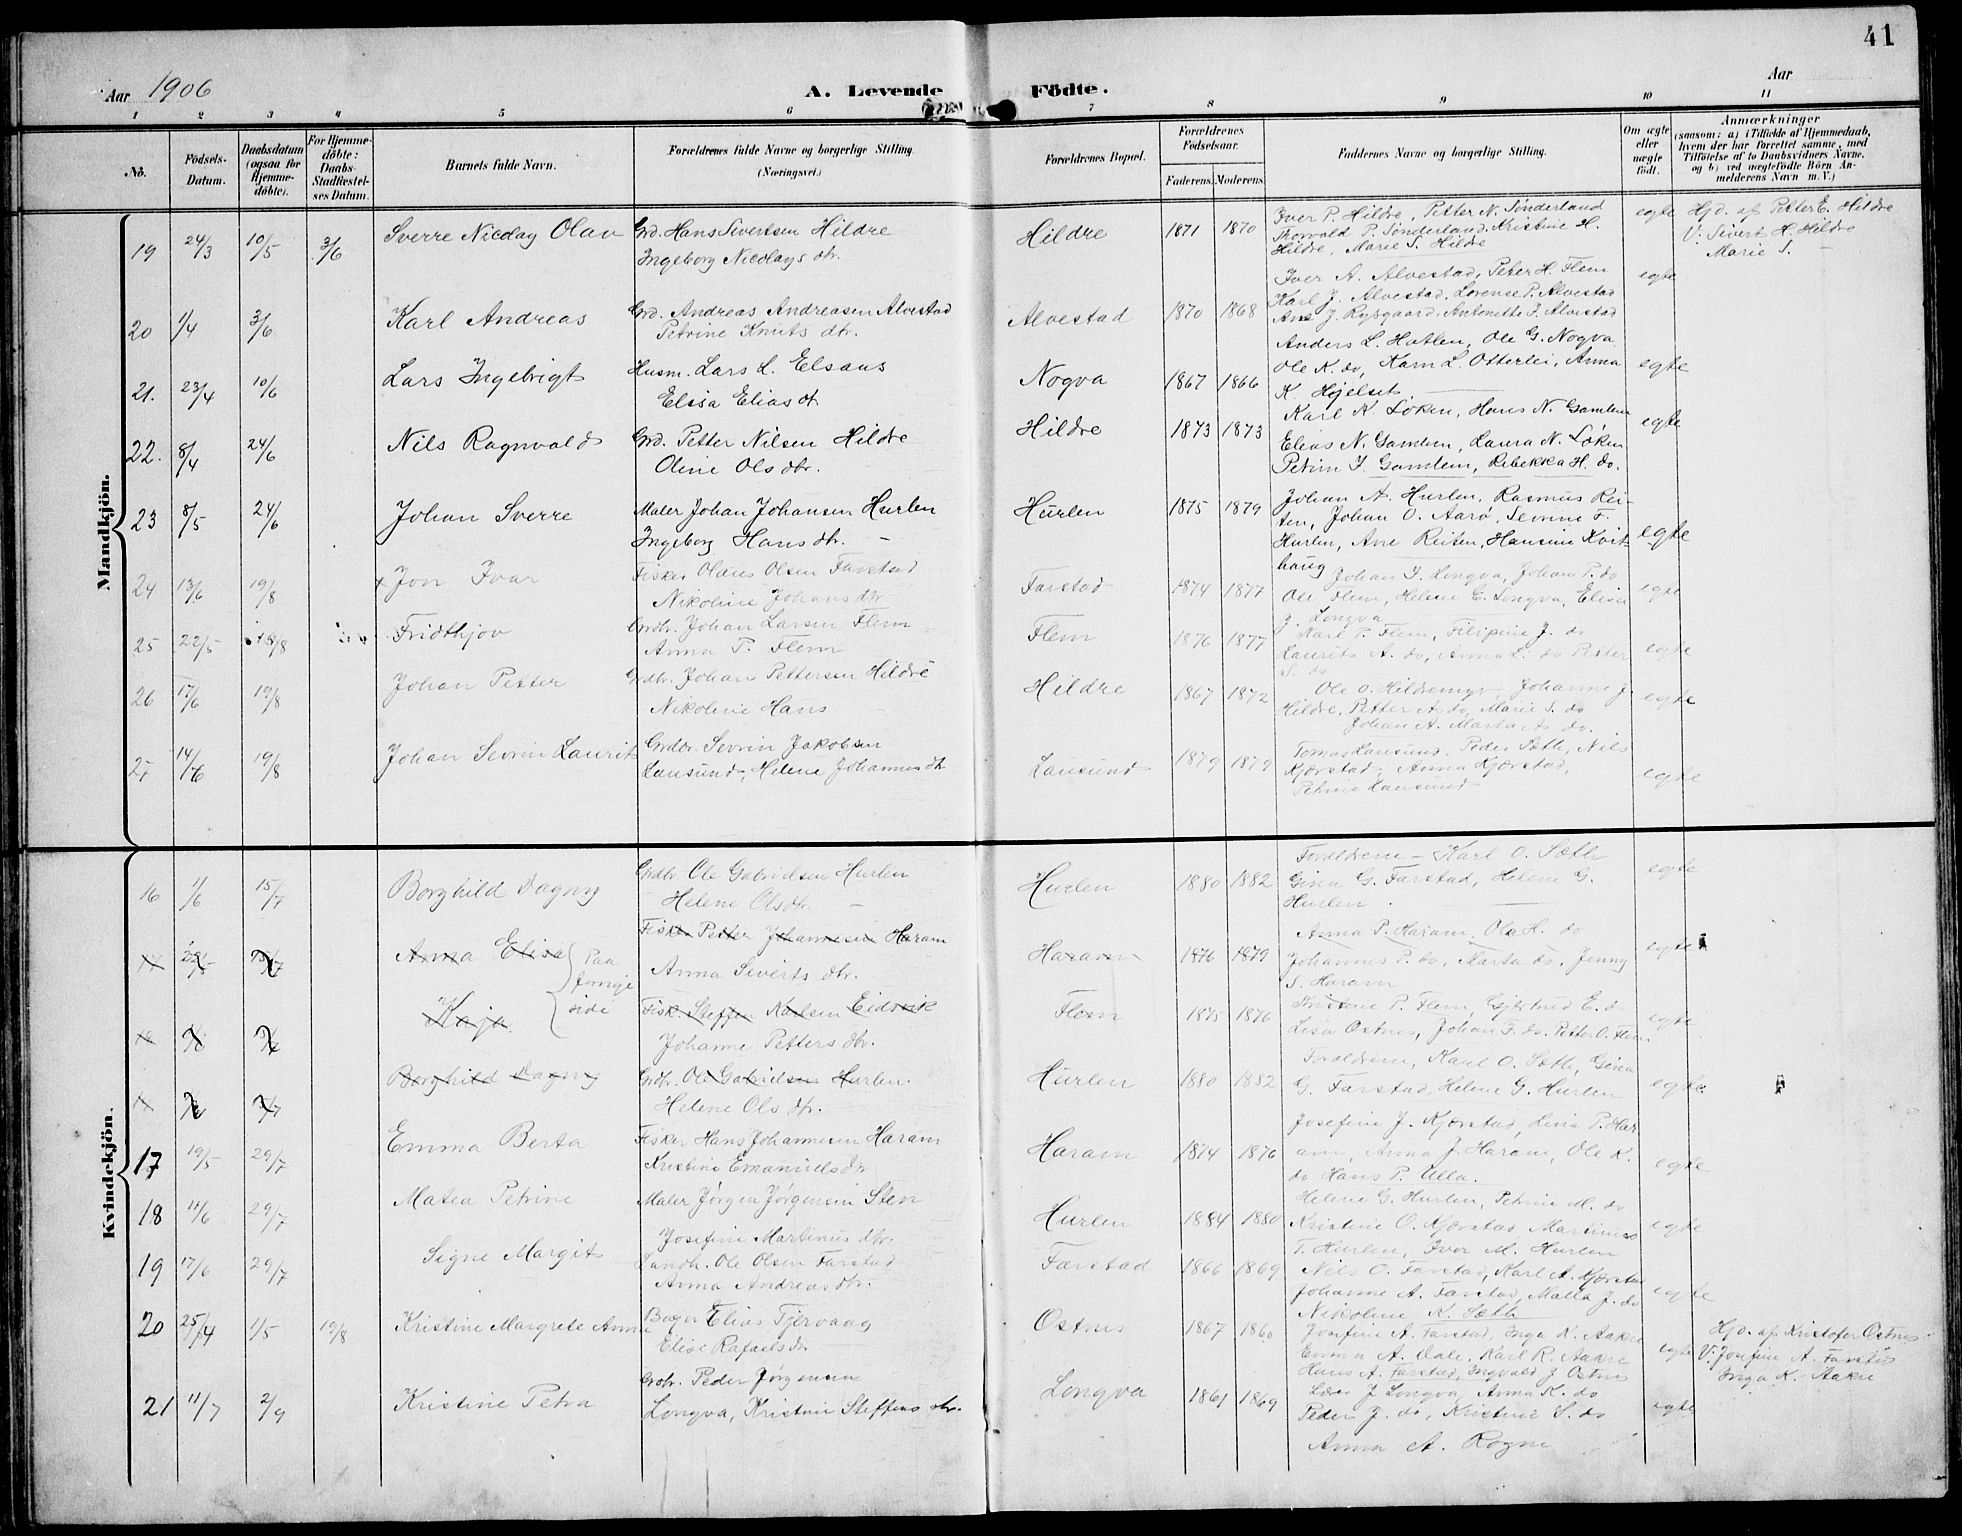 41
Aar 1906
A. Levende Födte.
Aar
1 2 3 4 5 6 7 8 9 10 11
No.
Födsels-Datum.
Daabsdatum (ogsaa for Hjemme-döbte).
For Hjemme-döbte: Daabs-Stadfæstel-ses Datum.
Barnets fulde Navn.
Forældrenes fulde Navne og borgerlige Stilling. (Næringsvei.)
Forældrenes Bopæl.
Forældrenes Födselsaar.
Faderens. Moderens.
Faddernes Navne og borgerlige Stilling.
Om ægte eller uægte födt.
Anmærkninger
(saasom: a) i Tilfælde af Hjemmedaab, hvem der har forrettet samme, med Tilföielse af to Daabsvidners Navne, og b) ved uægtefödte Börn An-melderens Navn m. V.)
Mandkjön.
19 24/3 10/5 3/6 Sverre Nicolay Olav Grd. Hans Sivertsen Hildre
Ingeborg Nicolays dtr.
Hildre 1871 1870 Iver P. Hildre, Petter N. Sönderland
Thorvald P. Sönderland, Kristine H.
Hildre, Marie S. Hildre
egte Hjd. af Petter E. Hildre
V: Sivert H. Hildre
Marie S. —
20 1/4 3/6 Karl Andreas Grd. Andreas Andreasen Alvestad
Petrine Knuts dtr.
Alvestad 1870 1868 Iver A. Alvestad, Peter H. Flem
Karl J. Alvestad, Lorense P. Alvestad
Ane J. Rypgaard, Antonette J. Alvestad
egte
21. 23/4 10/6 Lars Ingebrigt Husm. Lars L. Elsaas
Elisa Elias dt.
Nogva 1867 1866 Anders L. Hatlen, Ole G. Nogva,
Ole K. do, Karn L. Otterlei, Anna
K. Höjelset
egte
22. 8/4 24/6 Nils Ragnvald Grd. Petter Nilsen Hildre
Oline Ols dtr.
Hildre 1873 1873 Karl K. Löken, Hans N. Gamlem
Elias N. Gamlem, Laura N. Löken
Petrin J. Gamlem, Rebekka H. do.
egte
23 8/5 24/6 Johan Sverre Maler Johan Johansen Hurlen
Ingeborg Hans dtr. —
Hurlen 1875 1879 Johan A. Hurlen, Rasmus Rei-
ten, Johan O. Aarö, Sevrine F.
Hurlen, Ane Reiten, Hansine Kvit-
haug
egte
24 13/6 19/8 x Jon Ivar Fisker Olaus Olsen Farstad
Nikoline Johans dtr
Farstad 1874 1877 Johan I. Longva, Johan P. do
Ole Flem, Helene E. Longva, Elisa
J. Longva
egte
25 22/5 19/8 Fridthjov Grdbr. Johan Larsen Flem
Anna P. Flem
Flem 1876 1877 Karl P. Flem, Filipine J. do
Laurits A. do, Anna L. do Petter
S. do
egte
26 17/6 19/8 Johan Petter Grdbr. Johan Pettersen Hildre
Nikoline Hans —
Hildre 1867 1872 Ole O. Hildremyr, Johanne J.
Hildre, Petter A. do, Marie S. do
Johan A. Marta A. do.
egte
27 14/6 19/8 Johan Sevrin Laurits Grdbr. Sevrin Jakobsen
Lausund, Helene Johannes dtr
Lausund 1879 1879 Tomas Lausund, Peder Sæth, Nils
Kjærstad, Anna Kjærstad,
Petrine Lausund
egte
Kvindekjön.
16 1/6 15/7 Borghild Dagny Grdbr. Ole Gabrielsen Hurlen
Helene Olsdtr. —
Hurlen 1880 1882 Forældrene — Karl O. Sæth
Gina G. Farstad, Helene G.
Hurlen.
egte
Anna Elisa Paa forrige side
Fisker Petter Johannesen Haram
Anna Siverts dtr.
Haram 1876 1879 Anna P. Haram, Ola H. do
Johannes P. do, Marta do, Jenny
S. Haram
egte
Kaja
Fisk. Steffen Karlsen Eidsvik
Johanne Petters dtr.
Flem 1875 1876 Kristine P. Flem, Gjertrud E. do
Lisa Ostnes, Johan F. do. Petter O. Flem
egte
Borghild Dagny Grdbr. Ole Gabrielsen Hurlen.
Helene Ols dtr.
Hurlen 1880 1882 Forældrene, Karl O. Sæth, Gina
G. Farstad, Helene G. Hurlen
egte
17 19/5 29/7 Emma Berta Fisker Hans Johannesen Haram
Kristine Emanuels dtr
Haram 1874 1876 Josefine J. Kjærstad, Lina P. Har
am, Anna J. Haram, Ole K.
do Hans P. Ulla.
egte
18 11/6 29/7 Matea Petrine Maler Jörgen Jörgensen Sten
Josefine Martinus dtr.
Hurlen 1884 1880 Helene G. Hurlen, Petrine M. do
Kristine O. Kjærstad, Martinus
T. Hurlen, Iver M. Hurlen
egte
19 17/6 29/7 Signe Margit Landh. Ole Olsen Farstad
Anna Andreas dtr.
Farstad 1866 1869 Nils O. Farstad, Karl A. Kjærstad
Johanne A. Farstad, Malla J. do
Nikoline K. Sæth
egte
20 25/4 1/5 19/8 Kristine Margrete Anna Bager Elias Tjervaag
Elise Rafaels dtr
Ostnes 1867 1860 Josefine A. Farstad, Inga K. Aakre
Emma A. Dale, Karl R. Aakre
Hans A. Farstad, Ingvald J. Ostnes
egte Hjd. af Kristofer Ostnes
V: Josefine A. Farstad
Inga K. Aakre
21 11/7 2/9 Kristine Petra Grdbr. Peder Jörgensen
Longva, Kristine Steffens dtr.
Longva 1861 1869 Lars J. Longva, Anna K. do
Peder J. do, Kristine S. do
Anna A. Rogne
egte